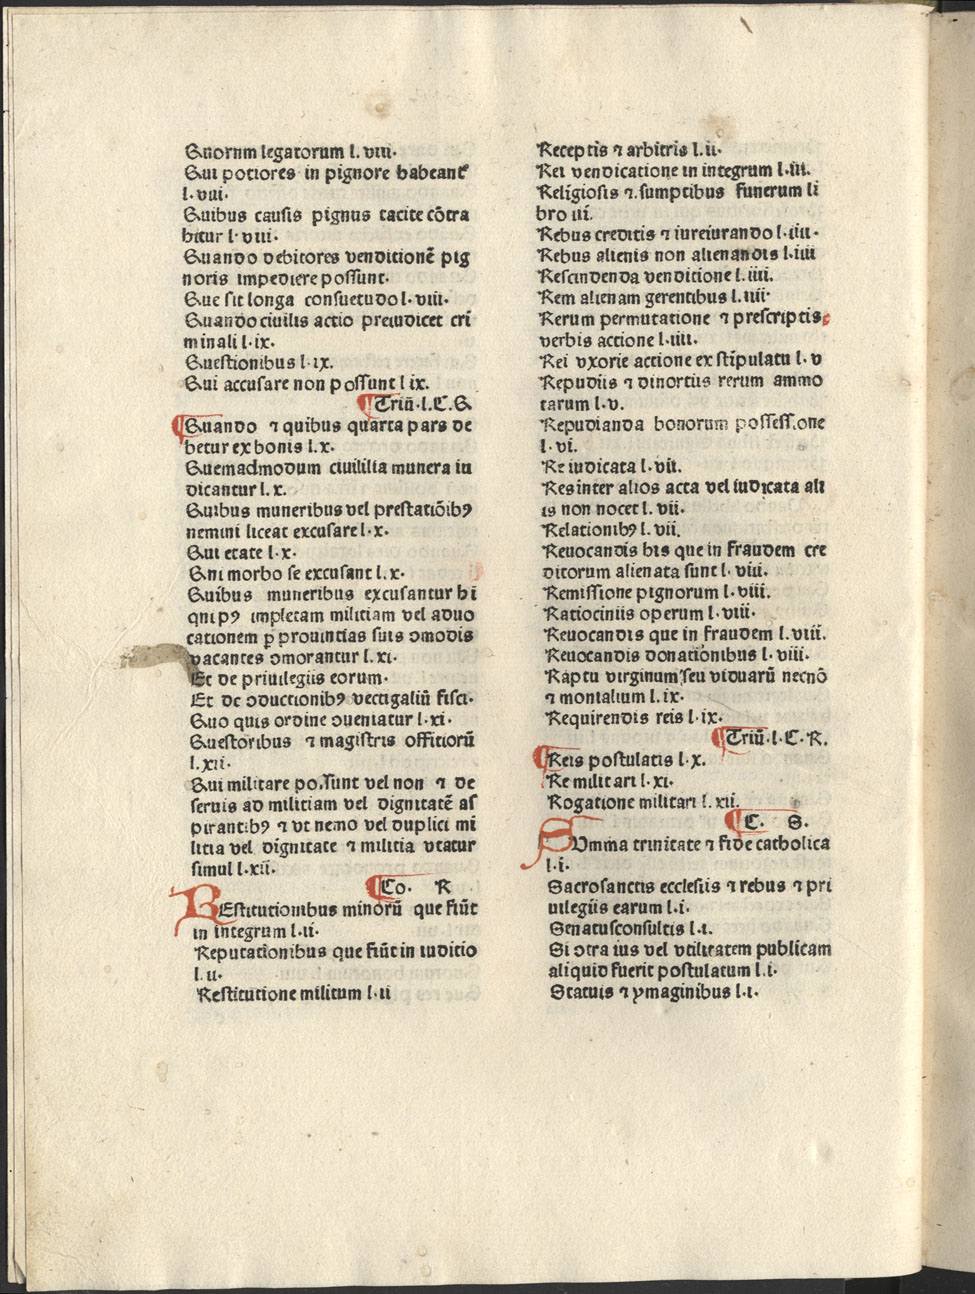 Quorum legatorum l. viii.
Qui potiores in pignore habeantᷣ
l. viii.
Quibus causis pignus tacite cōtra
hitur l. viii.
Quando debitores venditionē pig
noris impediere possunt.
Que sit longa consuetudo l. viii.
Quando ciuilis actio preiudicet cri
minali l. ix.
Questionibus l. ix.
Qui accusare non possunt l ix.
¶Triū. l. C. Q.
¶Quando ⁊ quibus quarta pars de
betur ex bonis l. x.
Quemadmodum ciuililia munera in
dicantur l. x.
Quibus muneribus vel prestatiōibꝰ
nemini liceat excusare l. x.
Qui etate l. x.
Qni morbo se excusant l. x.
Quibus muneribus excusantur hi
qni pꝰ impletam militiam vel aduo
cationem ꝑ prouintias suis ↄmodis
vacantes ↄmorantur l. xi.
Et de priuilegiis eorum.
Et de ↄductionibꝰ vectigaliū fisci.
Quo quis ordine ↄueniatur l. xi.
Questoribus ⁊ magistris offitiorū
l. xii.
Qui militare possunt vel non ⁊ de
seruis ad militiam vel dignitatē as
pirantibꝰ ⁊ vt nemo vel duplici mi
litia vel dignitate ⁊ militia vtatur
simul l. xii.
¶Co. R
REstitutionibus minorū que fiūt
in integrum l. ii.
Reputationibus que fiūt in iuditio
l. ii.
Restitutione militum l. ii
Receptis ⁊ arbitris l. ii.
Rei vendicatione in integrum l. iii.
Religiosis ⁊ sumptibus funerum li
bro iii.
Rebus creditis ⁊ iureiurando l. iiii.
Rebus alienis non alienandis l. iiii
Rescindenda venditione l. iiii.
Rem alienam gerentibus l. iiii.
Rerum permutatione ⁊ prescriptis
verbis actione l. iiii.
Rei vxorie actione ex stipulatu l. v
Repudiis ⁊ dinortiis rerum ammo
tarum l. v.
Repudianda bonorum possessione
l. vi.
Re iudicata l. vii.
Res inter alios acta vel iudicata ali
is non nocet l. vii.
Relationibꝰ l. vii.
Reuocandis his que in fraudem cre
ditorum alienata sunt l. viii.
Remissione pignorum l. viii.
Ratiociniis operum l. viii.
Reuocandis que in fraudem l. viii.
Reuocandis donationibus l. viii.
Raptu virginum seu viduarū necnō
⁊ monialium l. ix.
Requirendis reis l. ix.
¶Triū. l. C. R.
¶Reis postulatis l. x.
Re militari l. xi.
Rogatione militari l. xii.
¶C. S.
SVmma trinitate ⁊ fide catholica
l. i.
Sacrosanctis ecclesiis ⁊ rebus ⁊ pri
uilegiis earum l. i.
Senatusconsultis l. i.
Si ↄtra ius vel vtilitatem publicam
aliquid fuerit postulatum l. i.
Statuis ⁊ ymaginibus l. i.